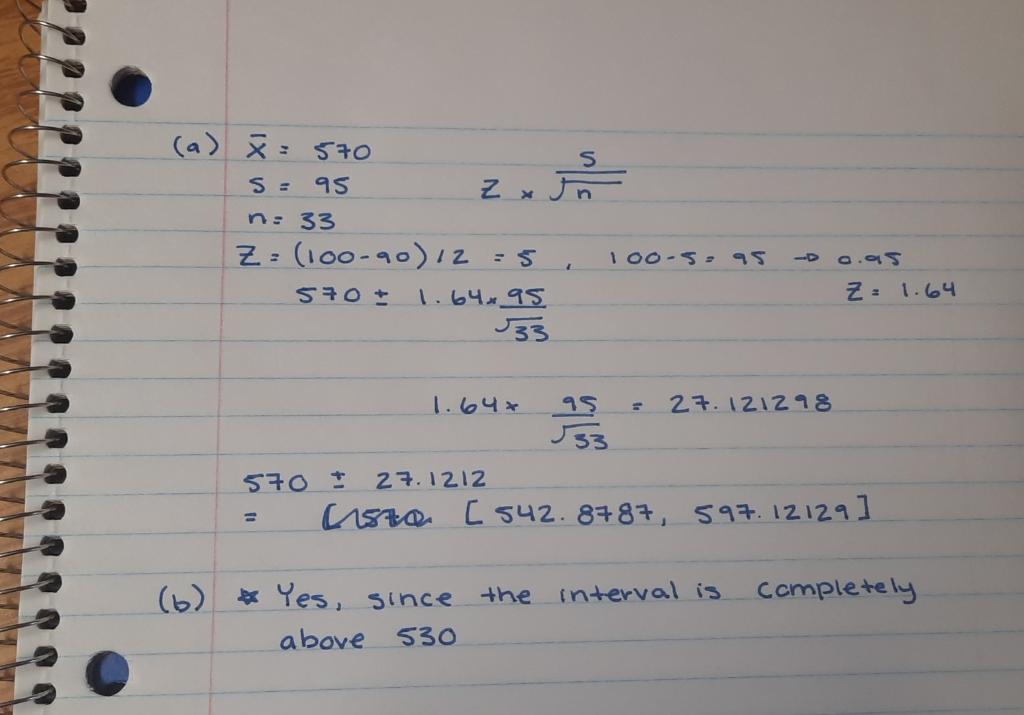 (a) x̄ = 570
s = 95
z × s/√n
n = 33
z = (100-90)/2 = 5, 100-5 = 95 → 0.95
570 ± 1.64 × 95/√33
z = 1.64
1.64 × 95/√33 = 27.121298
570 ± 27.1212
= [542.8787, 597.12129]
(b) * Yes, since the interval is completely
above 530